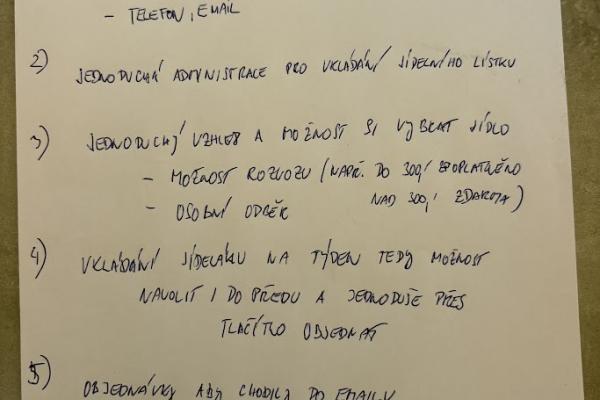 - TELEFON, EMAIL
2) JEDNODUCHÁ ADMINISTRACE PRO VKLÁDÁNÍ JÍDELNÍHO LÍSTKU
3) JEDNODUCHÝ VZHLED A MOŽNOST SI VYBRAT JÍDLO
- MOŽNOST ROZVOZU (NAPŘ. DO 300,- ZPOPLATNĚNO
- OSOBNÍ ODBĚR NAD 300,- ZDARMA)
4) VKLÁDÁNÍ JÍDELÁKU NA TÝDEN TEDY MOŽNOST
NAVOLIT I DO PŘEDU A JEDNODUŠE PŘES
TLAČÍTKO OBJEDNAT
5) OBJEDNÁVKY ABY CHODILY DO EMAILU